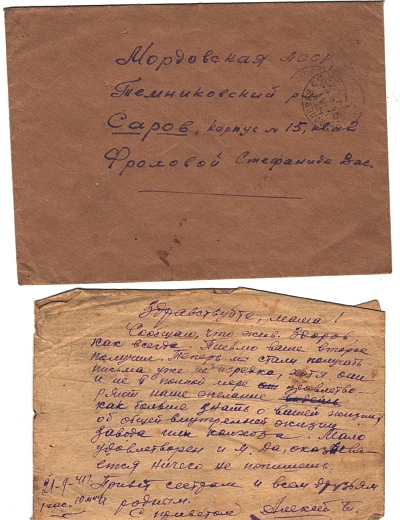 Мордовская АССР
Темниковский р
Саров, корпус № 15, кв. 2
Фроловой Стефаниде Вас.
Здравствуйте, мама!
Сообщаю, что жив. Здоров
как всегда. Письмо ваше второе
получил. Теперь мы стали получать
письма уже не изредка, хотя они
и не в полной мере удовлетво
ряют наше желание
как больше знать о вашей жизни,
об общей внутренней жизни
завода или колхоза. Мало
удовлетворен и я, да, сказ
ется ничего не попишешь.
Привет сестрам и всем друзьям
и родным.
21-9-41
С приветом Алексей